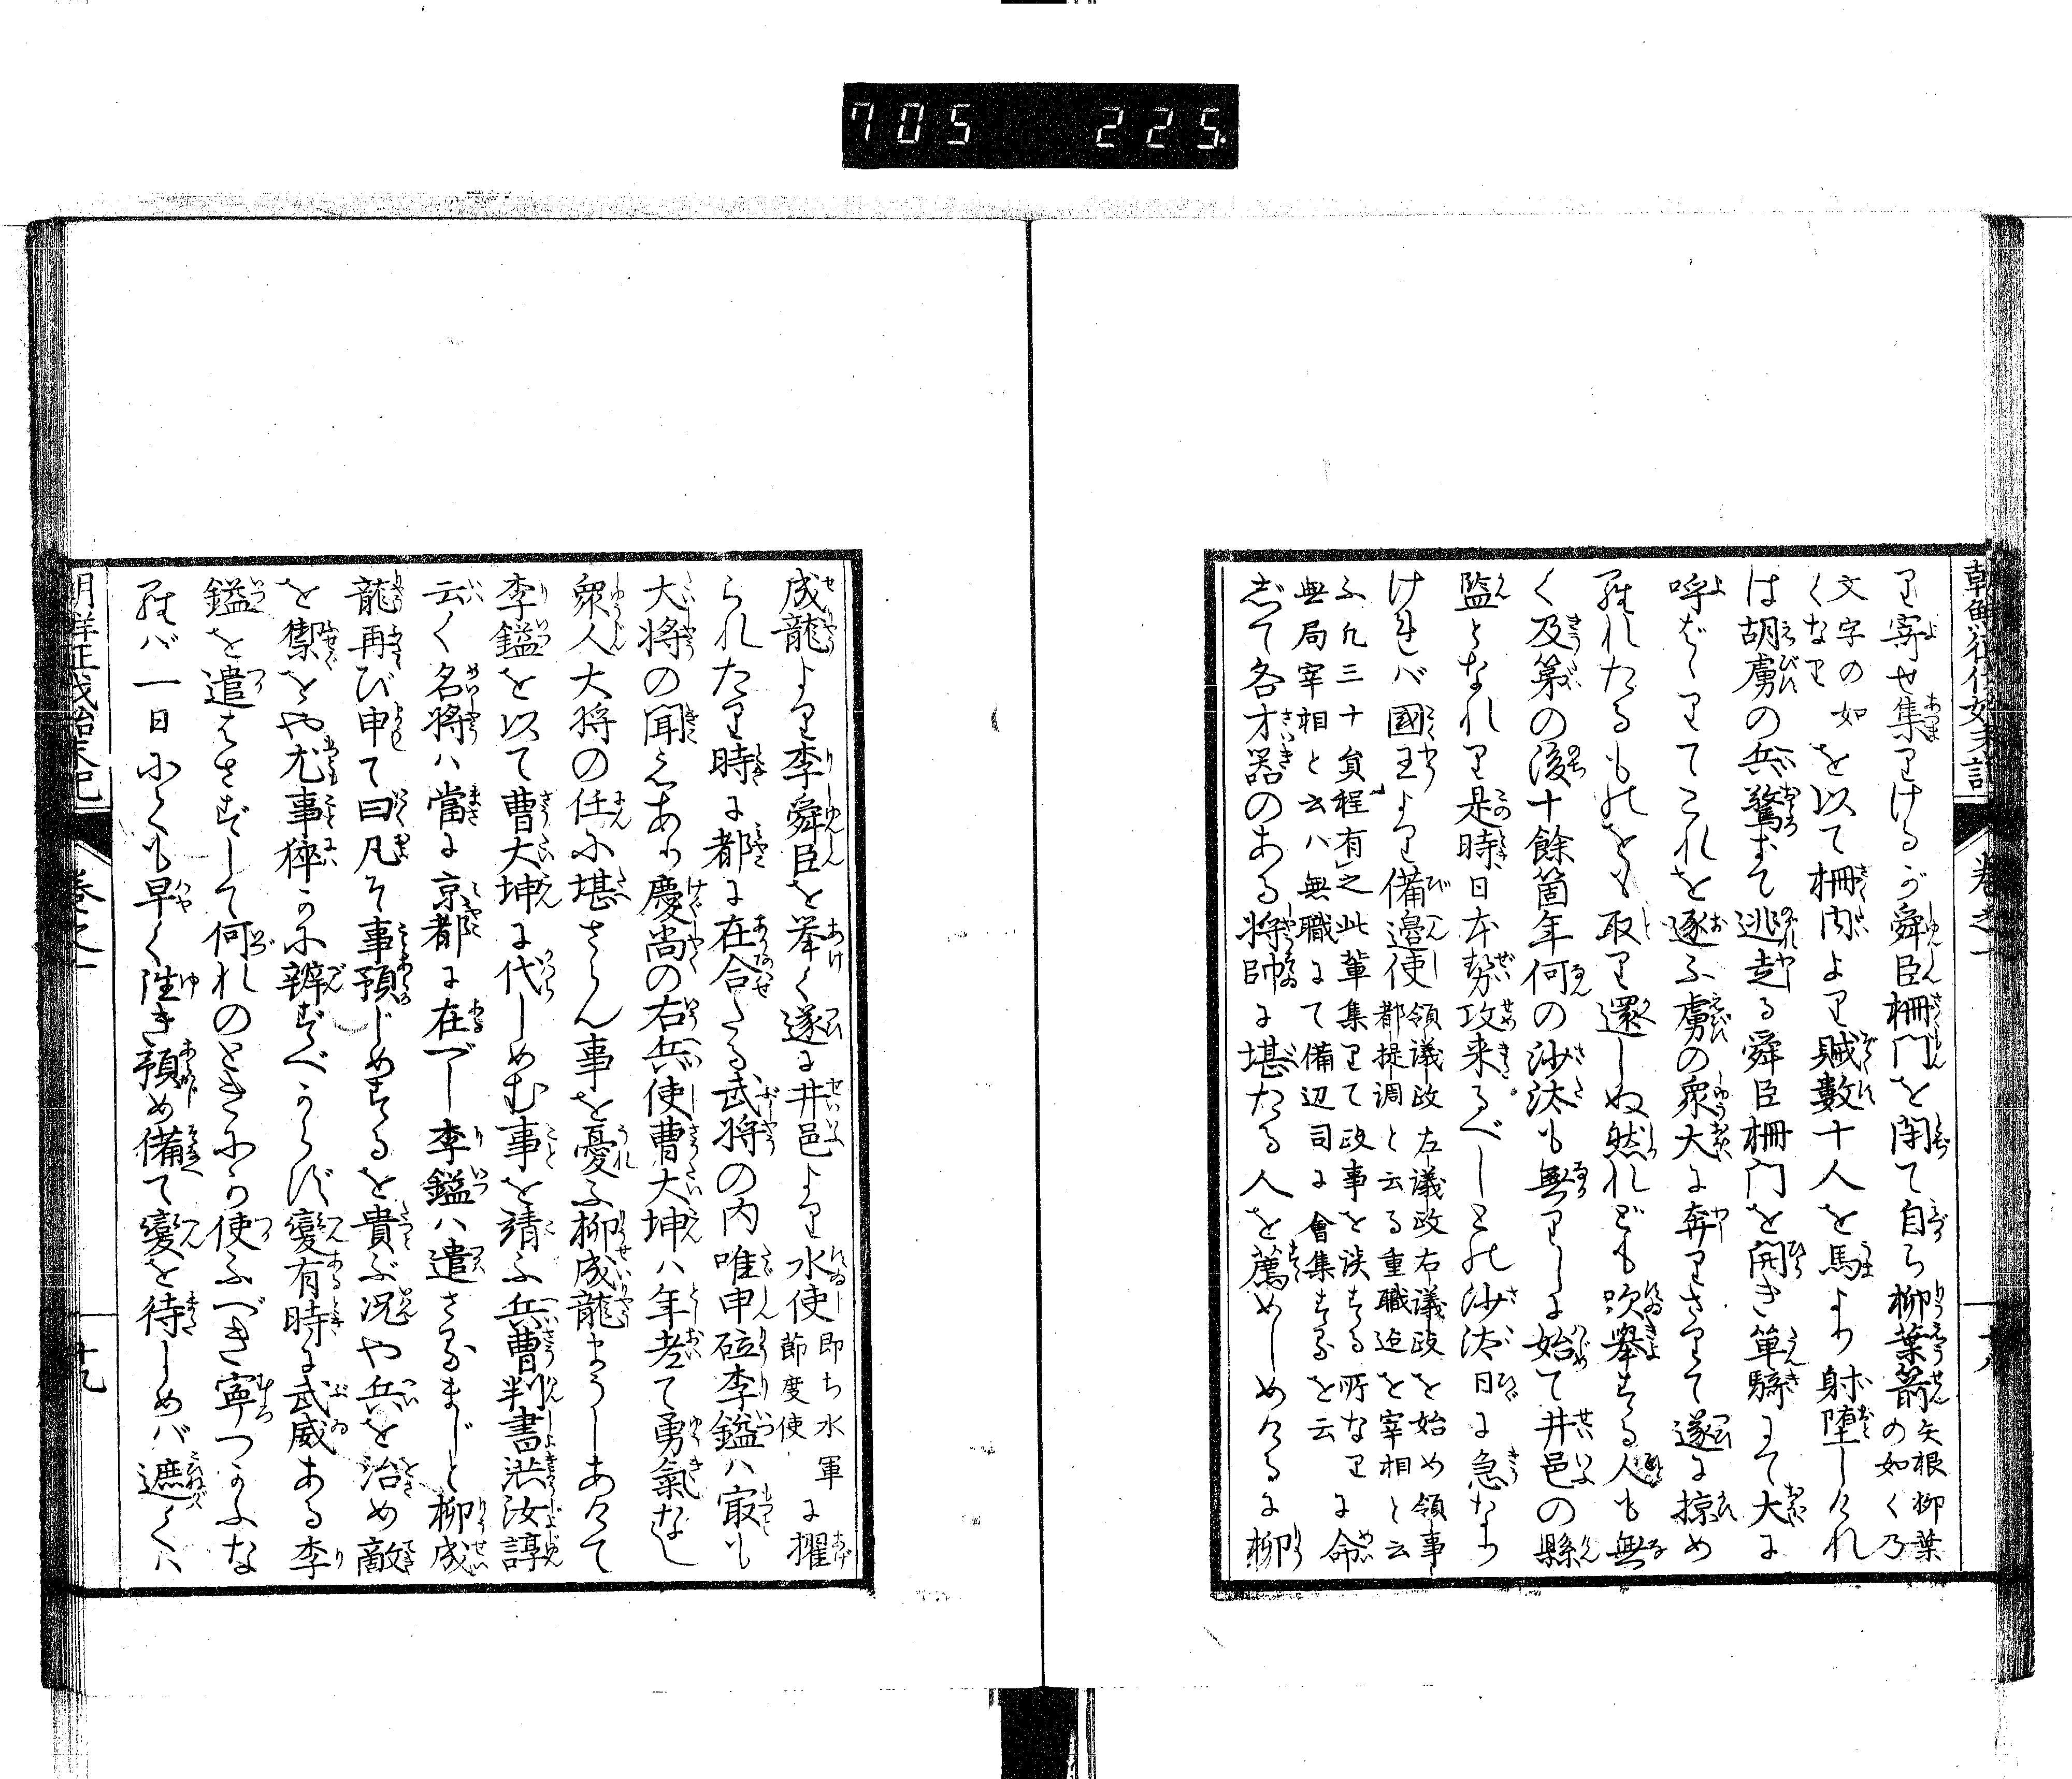 705 225
朝鮮征伐始末記 卷之一 十八
り寄せ集りけるが舜臣柵門を閉て自ら柳葉箭矢根柳葉の如く乃
文字の如くなりを以て柵内より賊數十人を馬より射堕しけれ
は胡虜の兵驚きて逃走る舜臣柵門を開き單騎にて大に
呼ばゝりてこれを逐ふ虜の衆大に奔りさりて遂に掠め
殺れたるものをも取り還しぬ然れども吹擧する人も無
く及第の後十餘箇年何の沙汰も無りしに始て井邑の縣
監となれり是時日本勢攻来るべしとの沙汰日に急なり
ければ國王より備邊使領議政左議政右議政を始め領事都提調と云る重職迄を宰相と云
ふ凡三十員程有之此輩集りて政事を談する所なり無局宰相と云ハ無職にて備辺司に會集するを云に命
じて各才器のある将帥に堪たる人を薦めしめけるに柳
成龍より李舜臣を挙く遂に井邑より水使即ち水軍節度使に擢
られたり時に都に在合たる武将の内唯申砬李鎰ハ寂も
大将の聞えあり慶尚の右兵使曹大坤ハ年老て勇氣なし
衆人大将の任に堪さらん事を憂ふ柳成龍まうしあけて
李鎰を以て曹大坤に代しめむ事を請ふ兵曹判書洪汝諄
云く名将ハ當に京都に在べし李鎰ハ遣さるまじと柳成
龍再び申て曰凡そ事預じめするを貴ぶ況や兵を治め敵
を禦をや尤事猝かに辨ずべからず變有時に武威ある李
鎰を遣はさずして何れのときにか使ふべき寧つかふな
らバ一日にても早く徃き預め備て變を待しめバ遮くハ
朝鮮征伐始末記 卷之一 十九